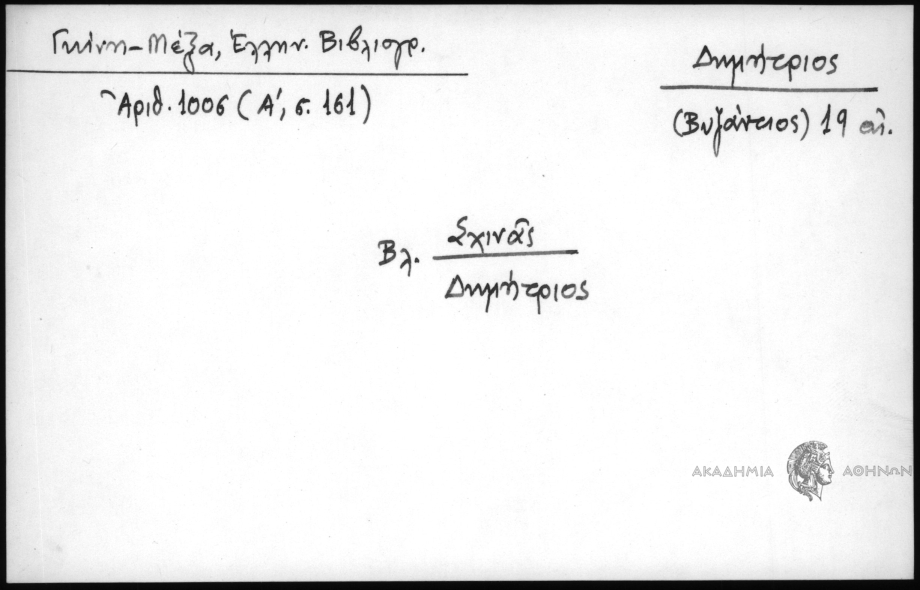 Γκίνη-Μέξα, Ἑλλην. Βιβλιογρ.
Ἀριθ. 1006 (Α', σ. 161)
Δημήτριος
(Βυζάντιος) 19 αἰ.
Βλ. Σχινᾶς
Δημήτριος
ΑΚΑΔΗΜΙΑ ΑΘΗΝΩΝ